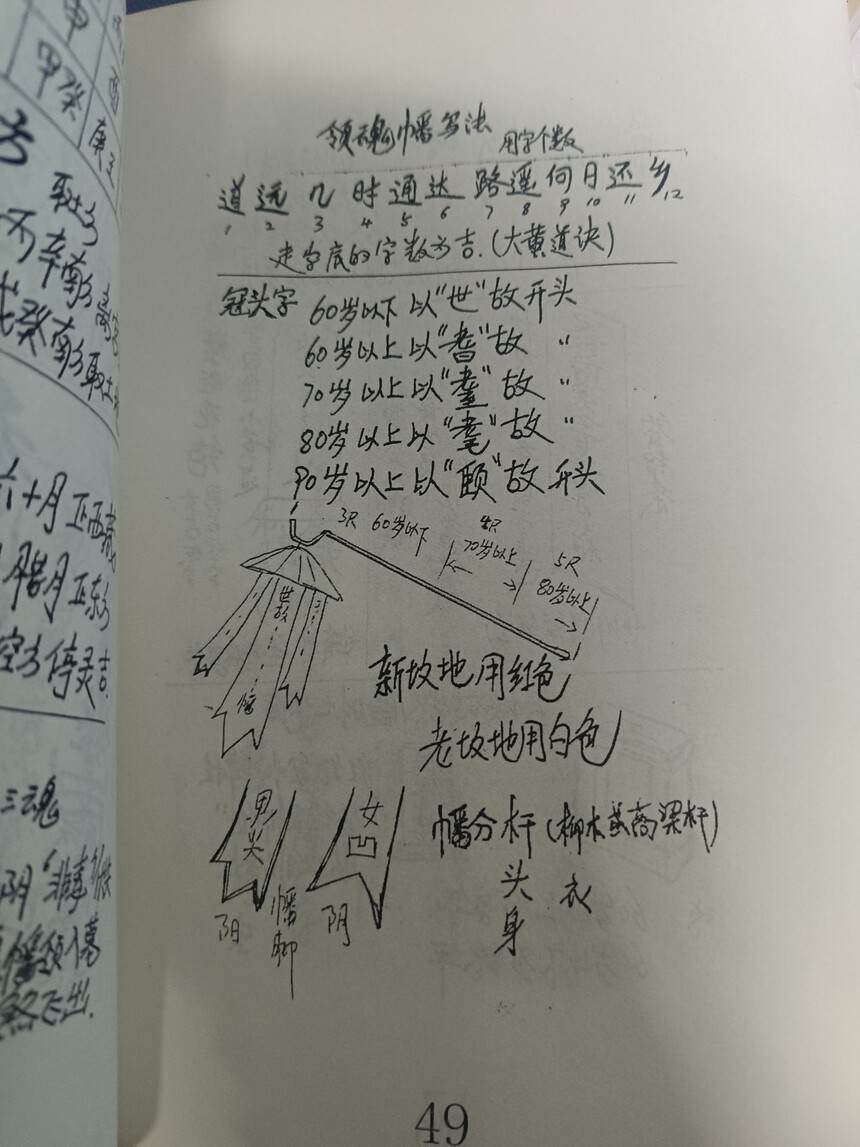 申
酉
甲 癸
庚 壬
取土方
辛 南方
癸 南方 取土
六十月 正西
月腊月 正东方
空方 停灵吉.
三魂
阴
幡领入墓
飞出.
领魂幡写法 用字个数
道 远 几 时 通 达 路 遥 何 日 还 乡
1 2 3 4 5 6 7 8 9 10 11 12
走字底的字数为吉.(大黄道诀)
冠头字 60岁以下 以"世"故开头
60岁以上以"耆"故 〃
70岁以上以"耋"故 〃
80岁以上以"耄"故 〃
90岁以上以"颐"故 开头
3R 60岁以下
4R
70岁以上
5R
80岁以上
世
故
新坟地用红色
老坟地用白色
男
尖
女
凹
幡分 杆(柳木或高梁杆)
头 衣
身
阳
幡
脚
阴
49